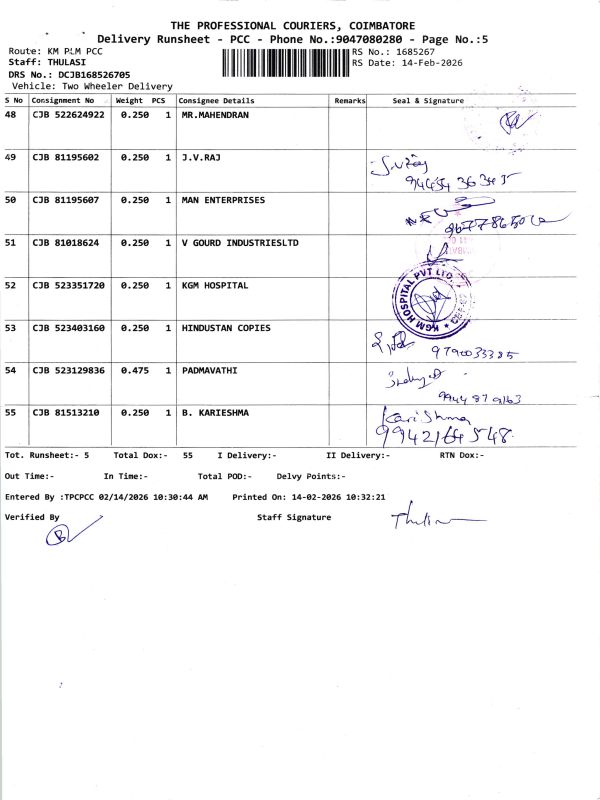 THE PROFESSIONAL COURIERS, COIMBATORE
Delivery Runsheet - PCC - Phone No.:9047080280 - Page No.:5
Route: KM PLM PCC RS No.: 1685267
Staff: THULASI RS Date: 14-Feb-2026
DRS No.: DCJB168526705
Vehicle: Two Wheeler Delivery
S No Consignment No Weight PCS Consignee Details Remarks Seal & Signature
48 CJB 522624922 0.250 1 MR.MAHENDRAN
49 CJB 81195602 0.250 1 J.V.RAJ
50 CJB 81195607 0.250 1 MAN ENTERPRISES
51 CJB 81018624 0.250 1 V GOURD INDUSTRIESLTD
52 CJB 523351720 0.250 1 KGM HOSPITAL
KGM HOSPITAL PVT LTD.
53 CJB 523403160 0.250 1 HINDUSTAN COPIES
9790033385
54 CJB 523129836 0.475 1 PADMAVATHI
55 CJB 81513210 0.250 1 B. KARIESHMA
Karishma
9942164548
Tot. Runsheet:- 5 Total Dox:- 55 I Delivery:- II Delivery:- RTN Dox:-
Out Time:- In Time:- Total POD:- Delvy Points:-
Entered By :TPCPCC 02/14/2026 10:30:44 AM Printed On: 14-02-2026 10:32:21
Verified By Staff Signature